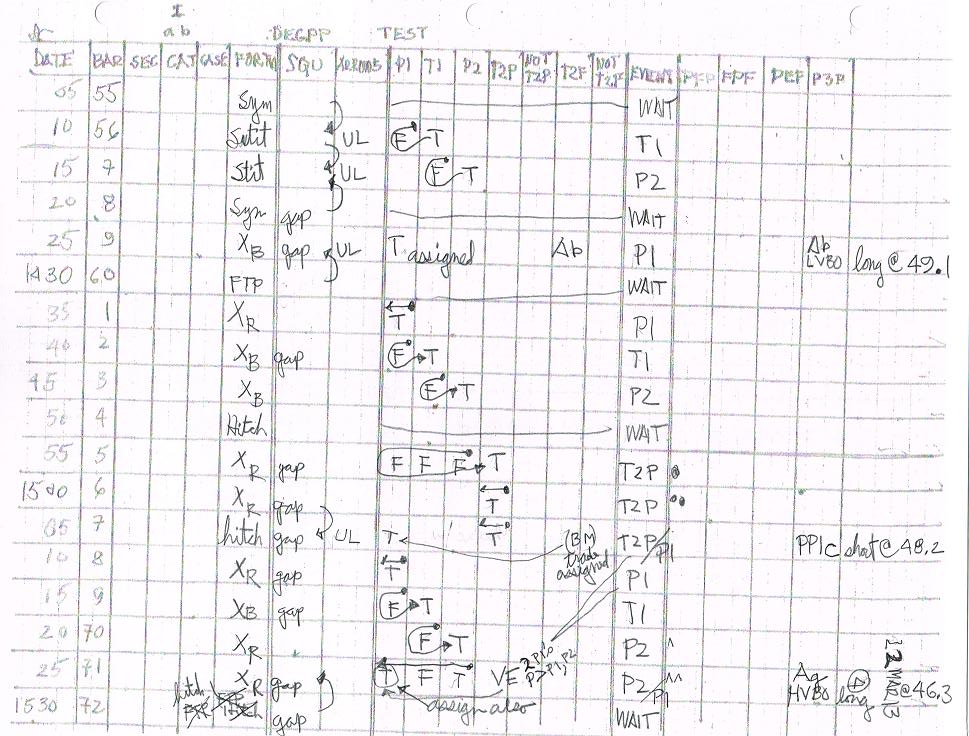 I
a b
DEGPP TEST
DATE BAR SEC CAT CASE FORM SQU P1 T1 P2 T2P NOT T2P T2F NOT T2F EVENT PFP FPF PEF P3P
05 55 Sym WAIT
10 56 Stit UL F T T1
15 7 Stit UL F T P2
20 8 Sym gap WAIT
25 9 XB gap UL T assigned Ab P1 Ab LVBO long @ 49.1
1430 60 FTP WAIT
35 1 XR T P1
40 2 XB gap F T T1
45 3 XB F T P2
50 4 Hitch WAIT
55 5 XR gap F F F T T2P
1500 6 XR gap T T2P
05 7 hitch gap UL T T (BM) trade assigned T2P P1 PP1c short @ 48.2
10 8 XR gap T P1
15 9 XB gap F T T1
20 70 XR F T P2 ^
25 71 XR gap T F T VE P2 P1 ^^ Ag HVBO long @ 46.3
12 MAR 13
1530 72 hitch gap assign also WAIT